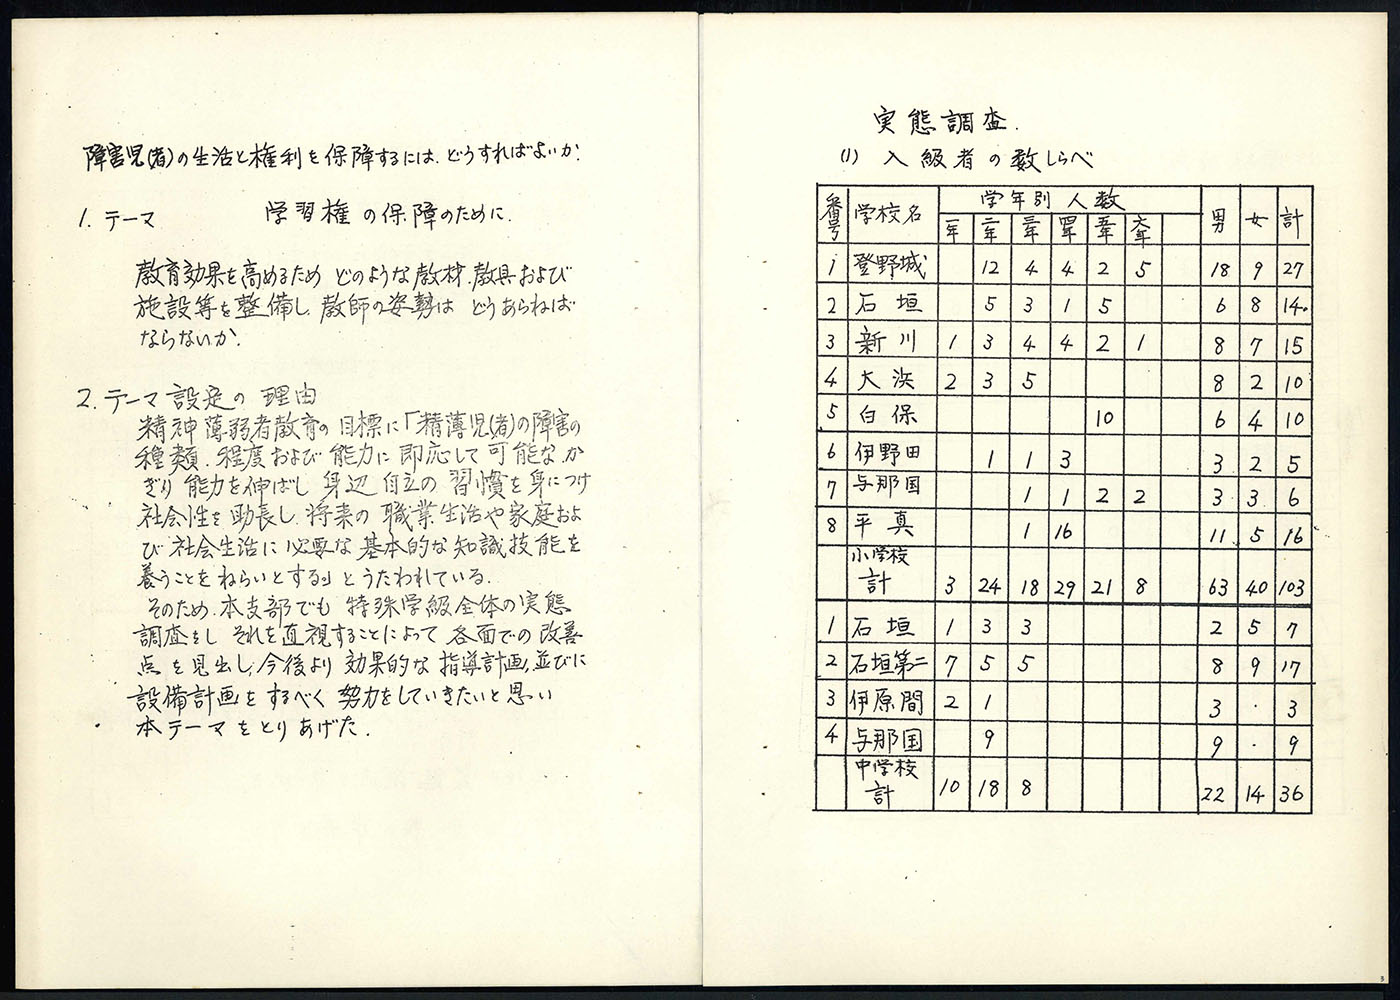 障害児(者)の生活と権利を保障するには、どうすればよいか.
1. テーマ 学習権の保障のために.
教育効果を高めるため どのような教材.教具および
施設等を整備し.教師の姿勢は どうあらねば
ならないか.
2. テーマ設定の 理由
精神薄弱者教育の目標に「精薄児(者)の障害の
種類.程度および能力に 即応して可能なか
ぎり能力を伸ばし 身辺自立の 習慣を身につけ
社会性を助長し.将来の 職業生活や家庭およ
び社会生活に 必要な基本的な知識技能を
養うことをねらいとする」とうたわれている.
そのため.本支部でも 特殊学級全体の実態
調査をし それを直視することによって 各面での改善
点を見出し,今後より効果的な指導計画,並びに
設備計画をするべく努力をしていきたいと思い
本テーマをとりあげた.
実態調査.
(1) 入級者の数しらべ
番号 学校名 学年別人数 男 女 計
一年 二年 三年 四年 五年 六年
1 登野城 12 4 4 2 5 18 9 27
2 石垣 5 3 1 5 6 8 14.
3 新川 1 3 4 4 2 1 8 7 15
4 大浜 2 3 5 8 2 10
5 白保 10 6 4 10
6 伊野田 1 1 3 3 2 5
7 与那国 1 1 2 2 3 3 6
8 平真 1 16 11 5 16
小学校
計 3 24 18 29 21 8 63 40 103
1 石垣 1 3 3 2 5 7
2 石垣第二 7 5 5 8 9 17
3 伊原間 2 1 3 ・ 3
4 与那国 9 9 ・ 9
中学校
計 10 18 8 22 14 36
3